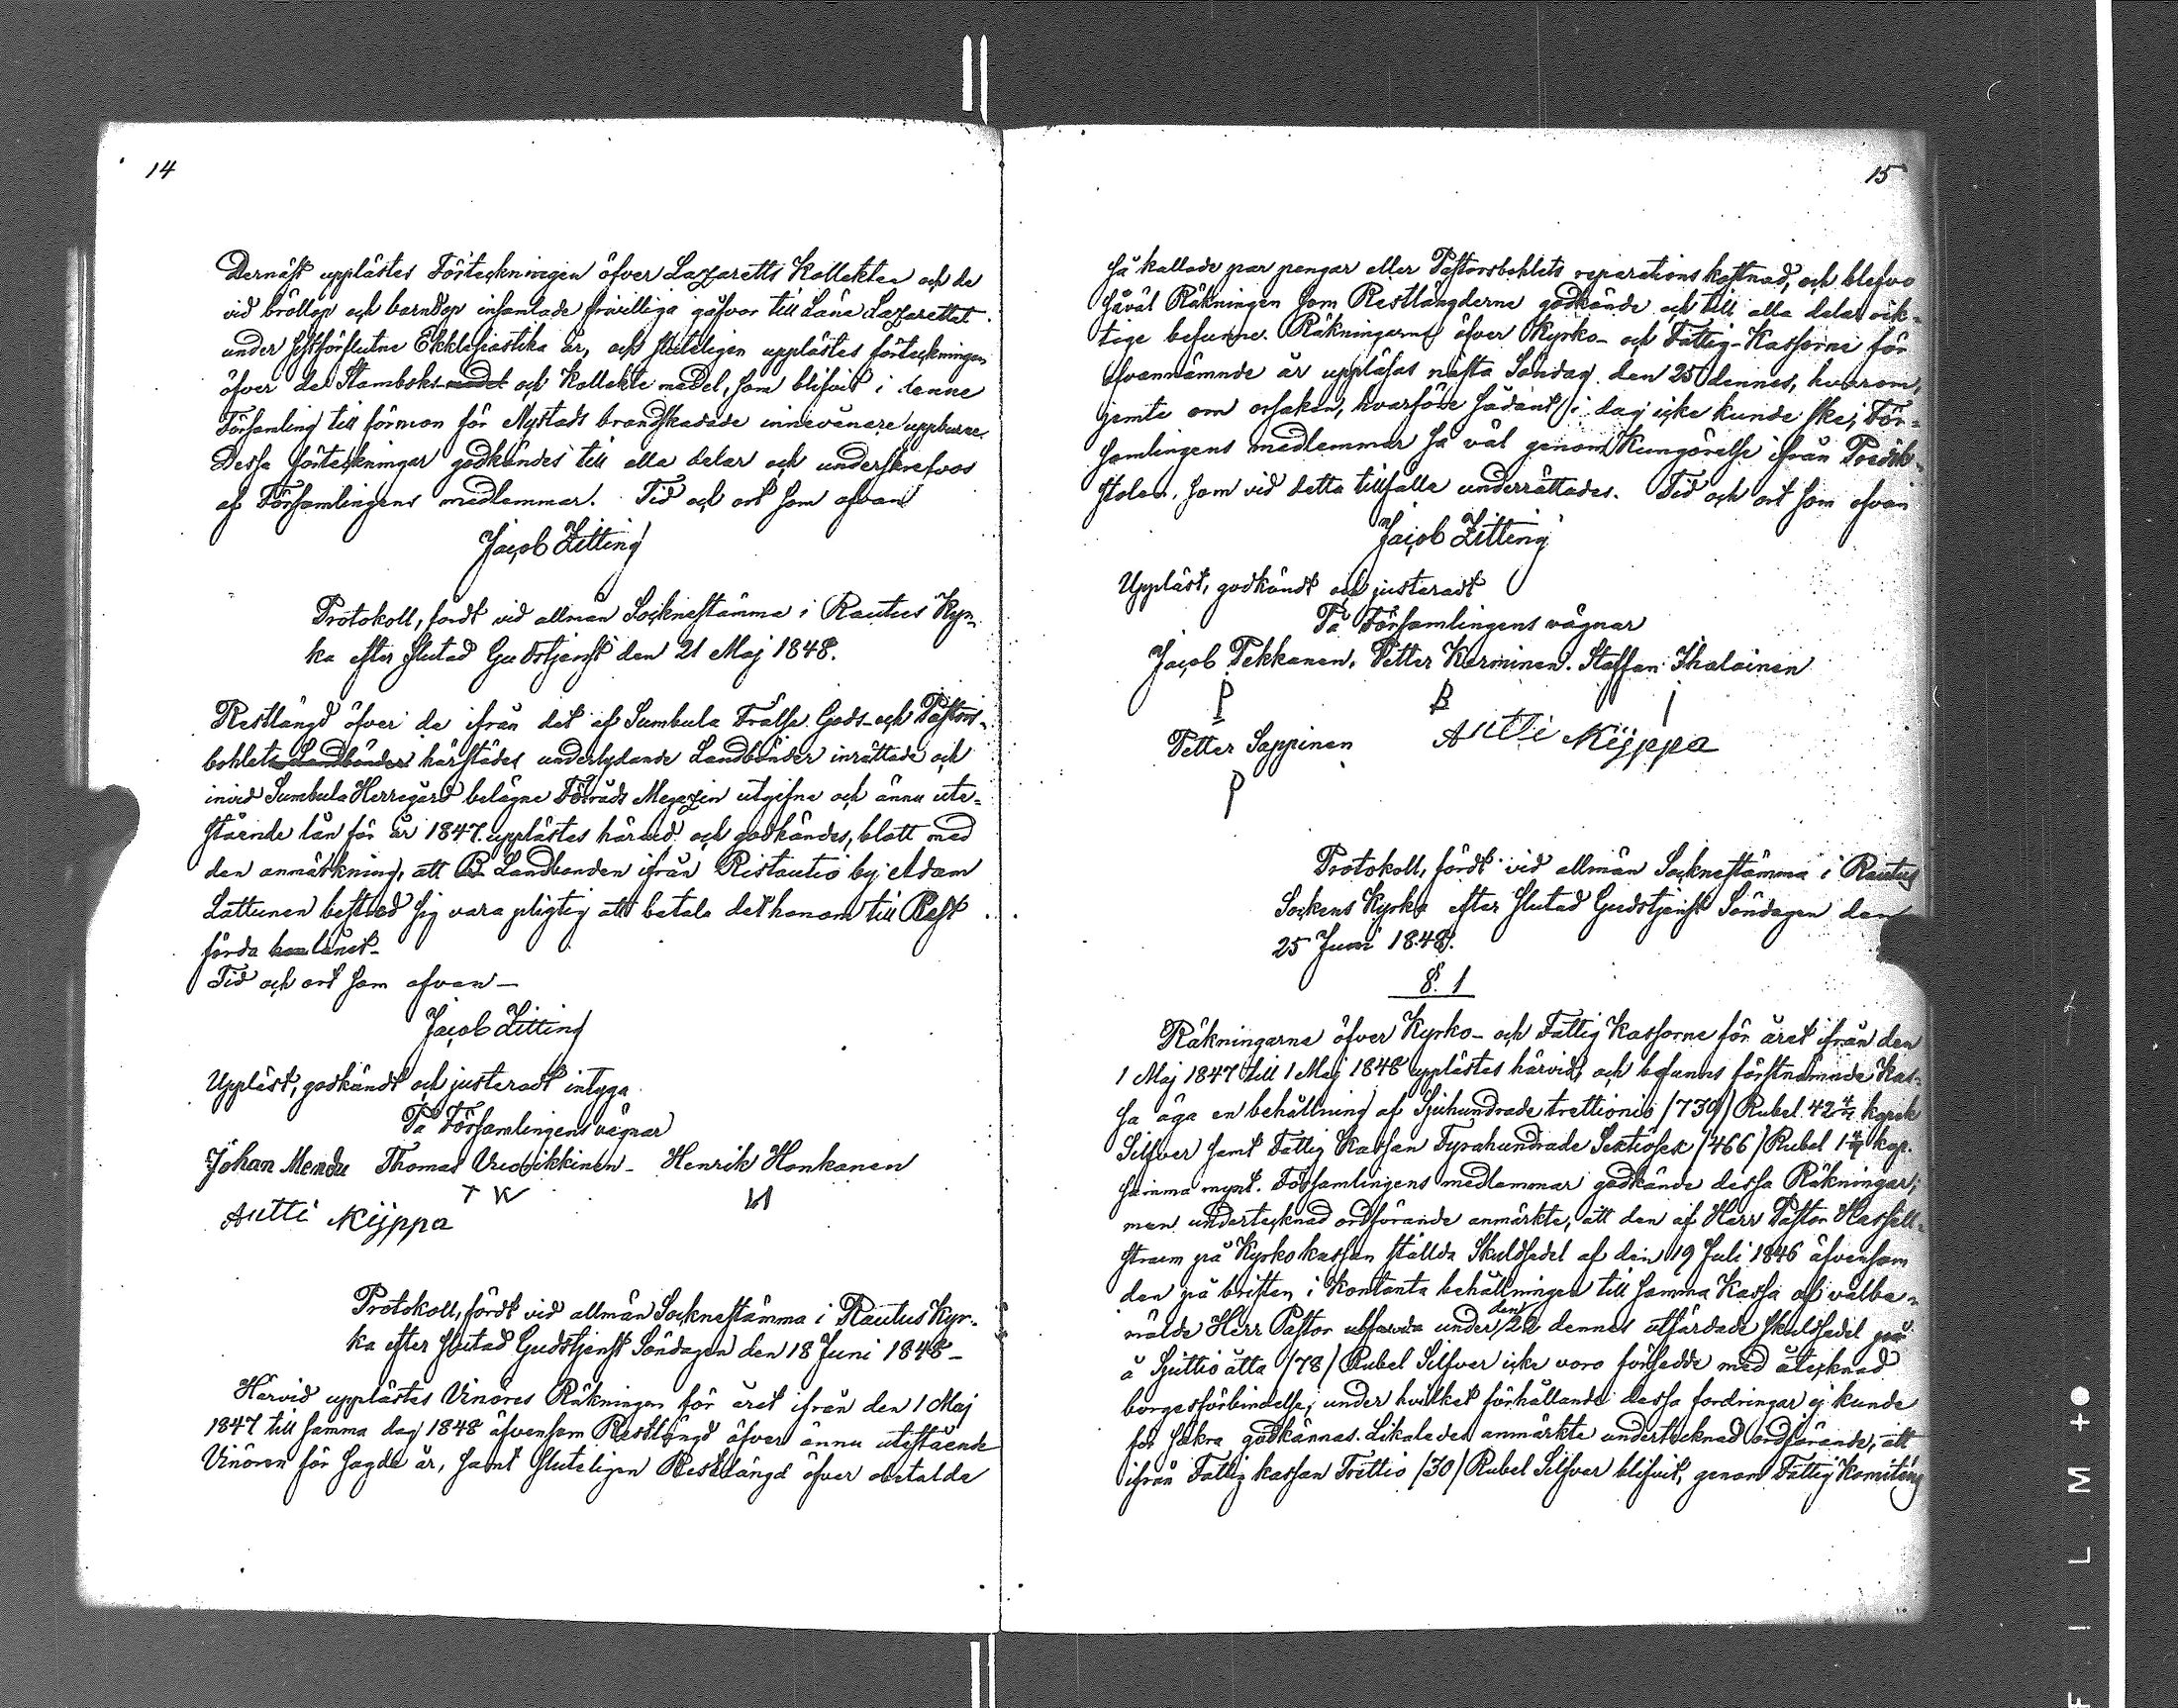 14
Dernäst upplästes Förteckningen öfver Lazaretts Kollekter och de
vid bröllop och barndop insamlade frivilliga gåfvor till Läne Lazarettet
under sistförflutne Ekklesiastika år, och sluteligen upplästes förteckningen
öfver de Stamboks medel och Kollekte medel, som blifvit i denne
Församling till förmon för Nystads brandskadade innevånare uppburne.
Dessa förteckningar godkändes till alla delar och underskrefvos
af Församlingens medlemmar. Tid och ort som ofvan
Jacob Zitting
Protokoll, fördt vid allmän Socknestämma i Rautus Kyr-
ka efter slutad Gudstjenst den 21 Maj 1848.
Restlängd öfver de ifrån det af Sumbula Frälse Gods- och Pastors-
bohlets Landbönder härstädes underlydande Landbönder inrättade och
invid Sumbula Herregård belägne Förråds Magazin utgifne och ännu ute-
stående lån för år 1847. upplästes härvid och godkändes, blott med
den anmärkning, att Landbonden ifrån Ristautio by Adam
Lattunen bestred sig vara pligtig att betala det honom till Rest
förda lånet-
Tid och ort som ofvan-
Jacob Zitting
Uppläst, godkändt och justeradt intyga
På Församlingens vägnar
Johan Mendu Thomas Vuosikkinen- Henrik Honkanen
T W H
Antti Kijppa
Protokoll, fördt vid allmän Sockne stämma i Rautus Kyr-
ka efter slutad Gudstjenst Söndagen den 18 Juni 1848-
Härvid upplästes Vinöres Räkningen för året ifrån den 1 Maj
1847 till samma dag 1848 äfvensom Restlängd öfver ännu utestående
Vinören för sagde år, samt sluteligen Restlängd öfver obetalde
15
så kallade par pengar eller Pastorsbohlets reparations kostnad, och blefvo
såväl Räkningen som Restlängderne godkände och till alla delar rik-
tige befunne. Räkningarne öfver Kyrko- och Fattig-Kassorne för
ofvannämnde år uppläsas nästa Söndag den 25 dennes, hvarom,
jemte om orsaken, hvarföre sådant i dag icke kunde ske, För-
samlingens medlemmar så väl genom Kungörelse ifrån Predik-
stolen, som vid detta tillfälle underrättades. Tid och ort som ofvan
Jacob Zitting
Uppläst, godkändt och justeradt
På Församlingens vägnar
Jacob Pekkanen. Petter Karminen. Staffan Ihalainen
P B I
Petter Sappinen Antti Kijppa
P
Protokoll, fördt vid allmän Sockne stämma i Rautus
Sockens Kyrka efter slutad Gudstjenst Söndagen den
25 Juni 1848.
§. 1
Räkningarne öfver Kyrko- och Fattig Kassorne för året ifrån den
1 Maj 1847 till 1 Maj 1848 upplästes härvid, och befanns förstnämnde Kas-
sa äga en behållning af Sjuhundrade trettionio /739/ Rubel 42 4/7 kopek
Silfver samt Fattig Kassan Fyrahundrade Sextiosex /466/ Rubel 1 4/7 kop.
samma mynt. Församlingens medlemmar godkände dessa Räkningar;
men undertecknad ordförande anmärkte, att den af Herr Pastor Hassell-
straem på Kyrko kassan ställda Skuldsedel af den 19 Juli 1846 äfvensom
den på bristen i kontanta behållningen till samma Kassa af välbe-
mälde Herr Pastor utfärda under den 22 dennes utfärdade skuldsedel på
å Sjuttio åtta /78/ Rubel Silfver icke voro försedde med åtecknad
borgesförbindelse, under hvilket förhållande dessa fordringar ej kunde
för säkra godkännas. Likaledes anmärkte undertecknad ordförande, att
ifrån Fattig kassan Trettio /30/ Rubel Silfver blifvit, genom Fattig Komiténs
FILM